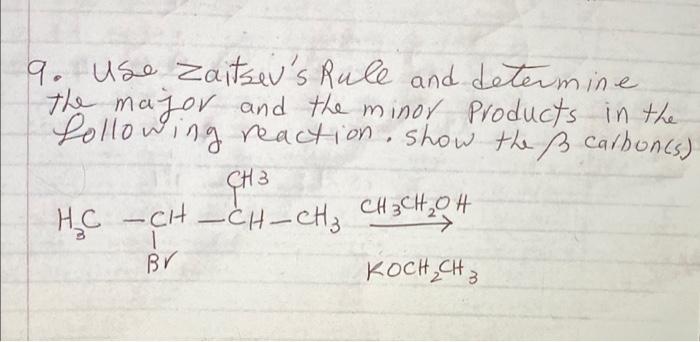 9. Use Zaitsev's Rule and determine
the major and the minor Products in the
following reaction. show the β carbon(s)
CH3
H3C - CH - CH - CH3 CH3CH2OH
Br KOCH2CH3